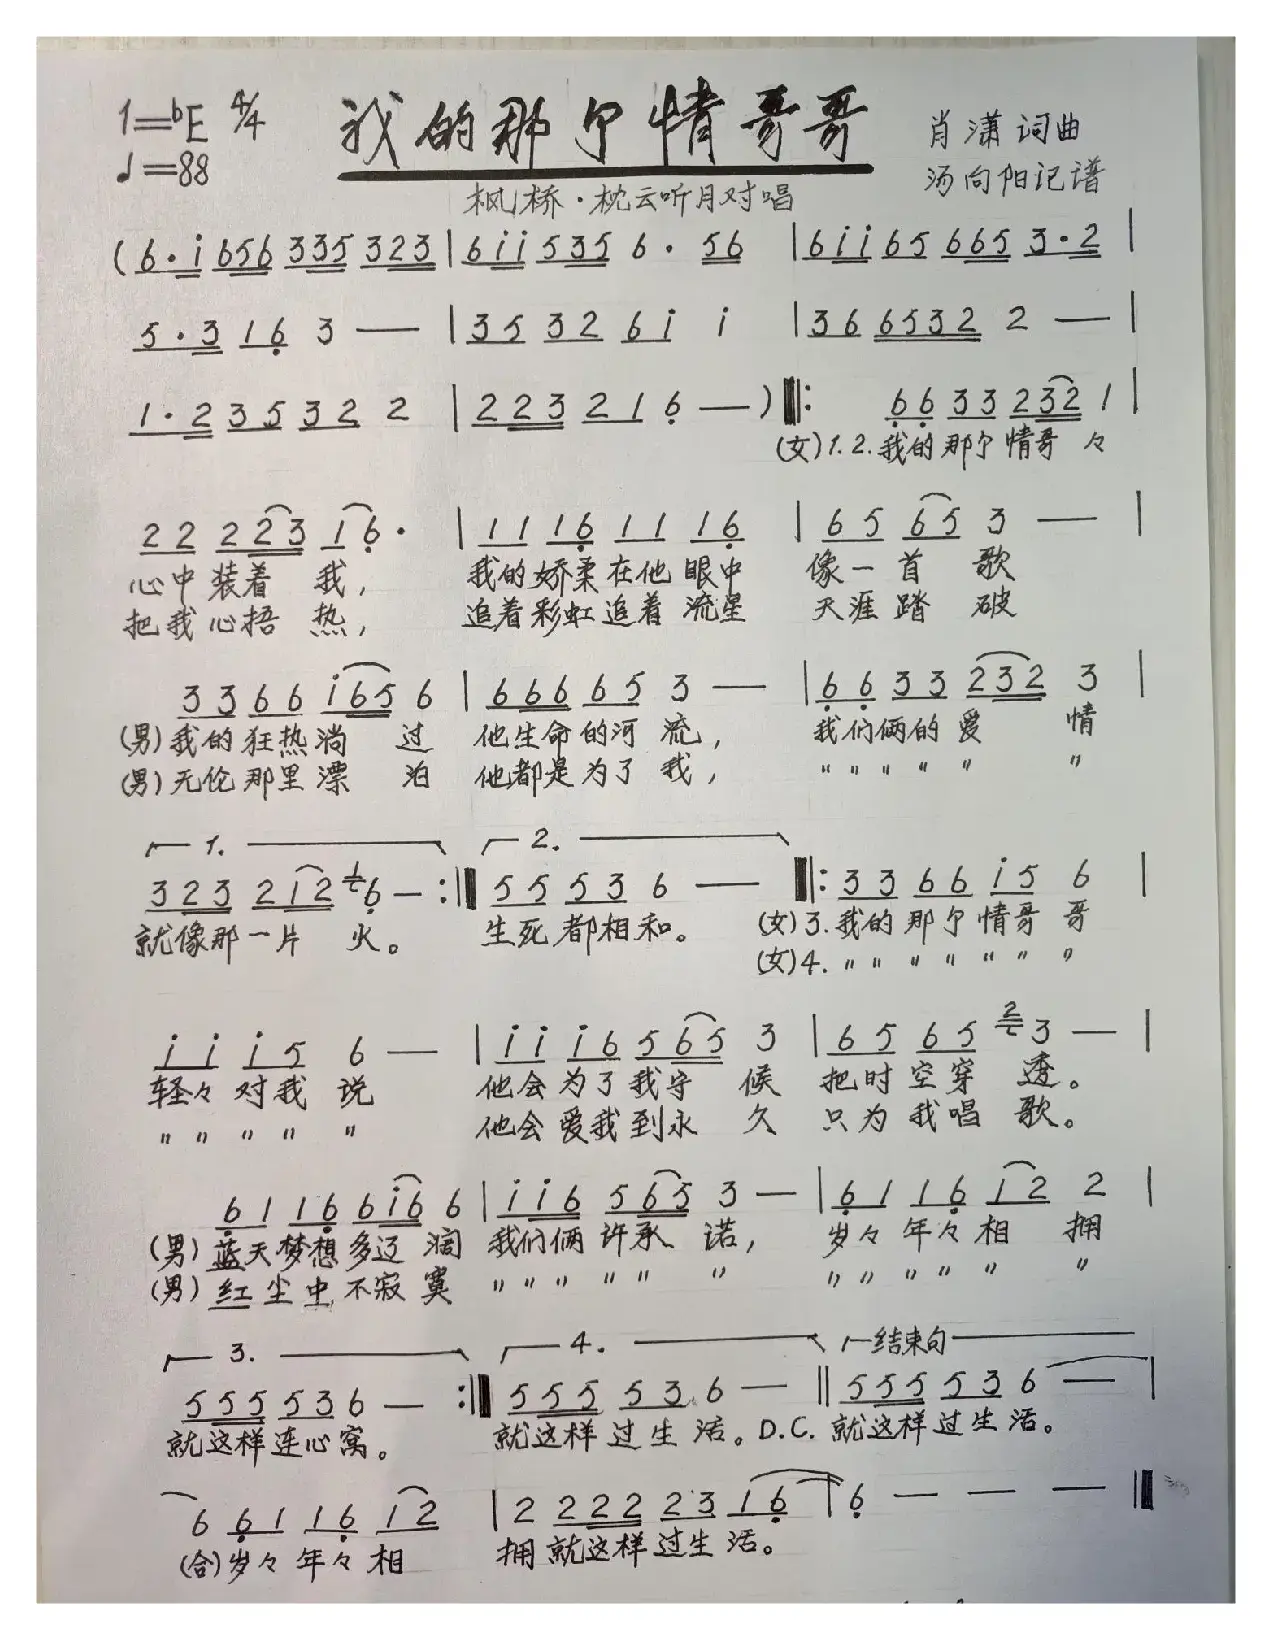 1=bE 4/4 我的那个情哥哥 肖潇词曲
♩=88 汤向阳记谱
枫桥·枕云听月对唱
(6·i 656 335 323 | 6ii 535 6· 56 | 6ii 65 665 3·2 |
5·3 16 3 — | 35 32 6i i | 36 6532 2 — |
1·2 35 32 2 | 223 21 6 —) ‖: 66 33 232 1 |
(女)1.2.我的那个情哥々
22 223 16· | 11 16 11 16 | 65 65 3 — |
心中装着我, 我的娇柔在他眼中 像一首歌
把我心捂热, 追着彩虹追着流星 天涯踏破
33 66 i65 6 | 666 65 3 — | 66 33 232 3 |
(男)我的狂热淌过 他生命的河流, 我们俩的爱情
(男)无伦那里漂泊 他都是为了我, 〃〃〃〃〃〃
1. 2.
323 212 1 6 — :‖ 55 53 6 — ‖: 33 66 i5 6 |
就像那一片火。 生死都相和。 (女)3.我的那个情哥哥
(女)4.〃〃〃〃〃〃〃
ii i5 6 — | ii i6 565 3 | 65 65 2 3 — |
轻々对我说 他会为了我守候 把时空穿透。
〃〃〃〃〃 他会爱我到永久 只为我唱歌。
61 16 6i6 6 | ii6 565 3 — | 61 16 12 2 |
(男)蓝天梦想多辽阔 我们俩许承诺, 岁々年々相拥
(男)红尘中不寂寞 〃〃〃〃〃〃 〃〃〃〃〃〃
3. 4. 结束句
555 536 — :‖ 555 53 6 — ‖ 555 53 6 — |
就这样连心窝。 就这样过生活。D.C. 就这样过生活。
6 61 16 12 | 2 222 23 16 | 6 — — — ‖
(合)岁々年々相 拥就这样过生活。